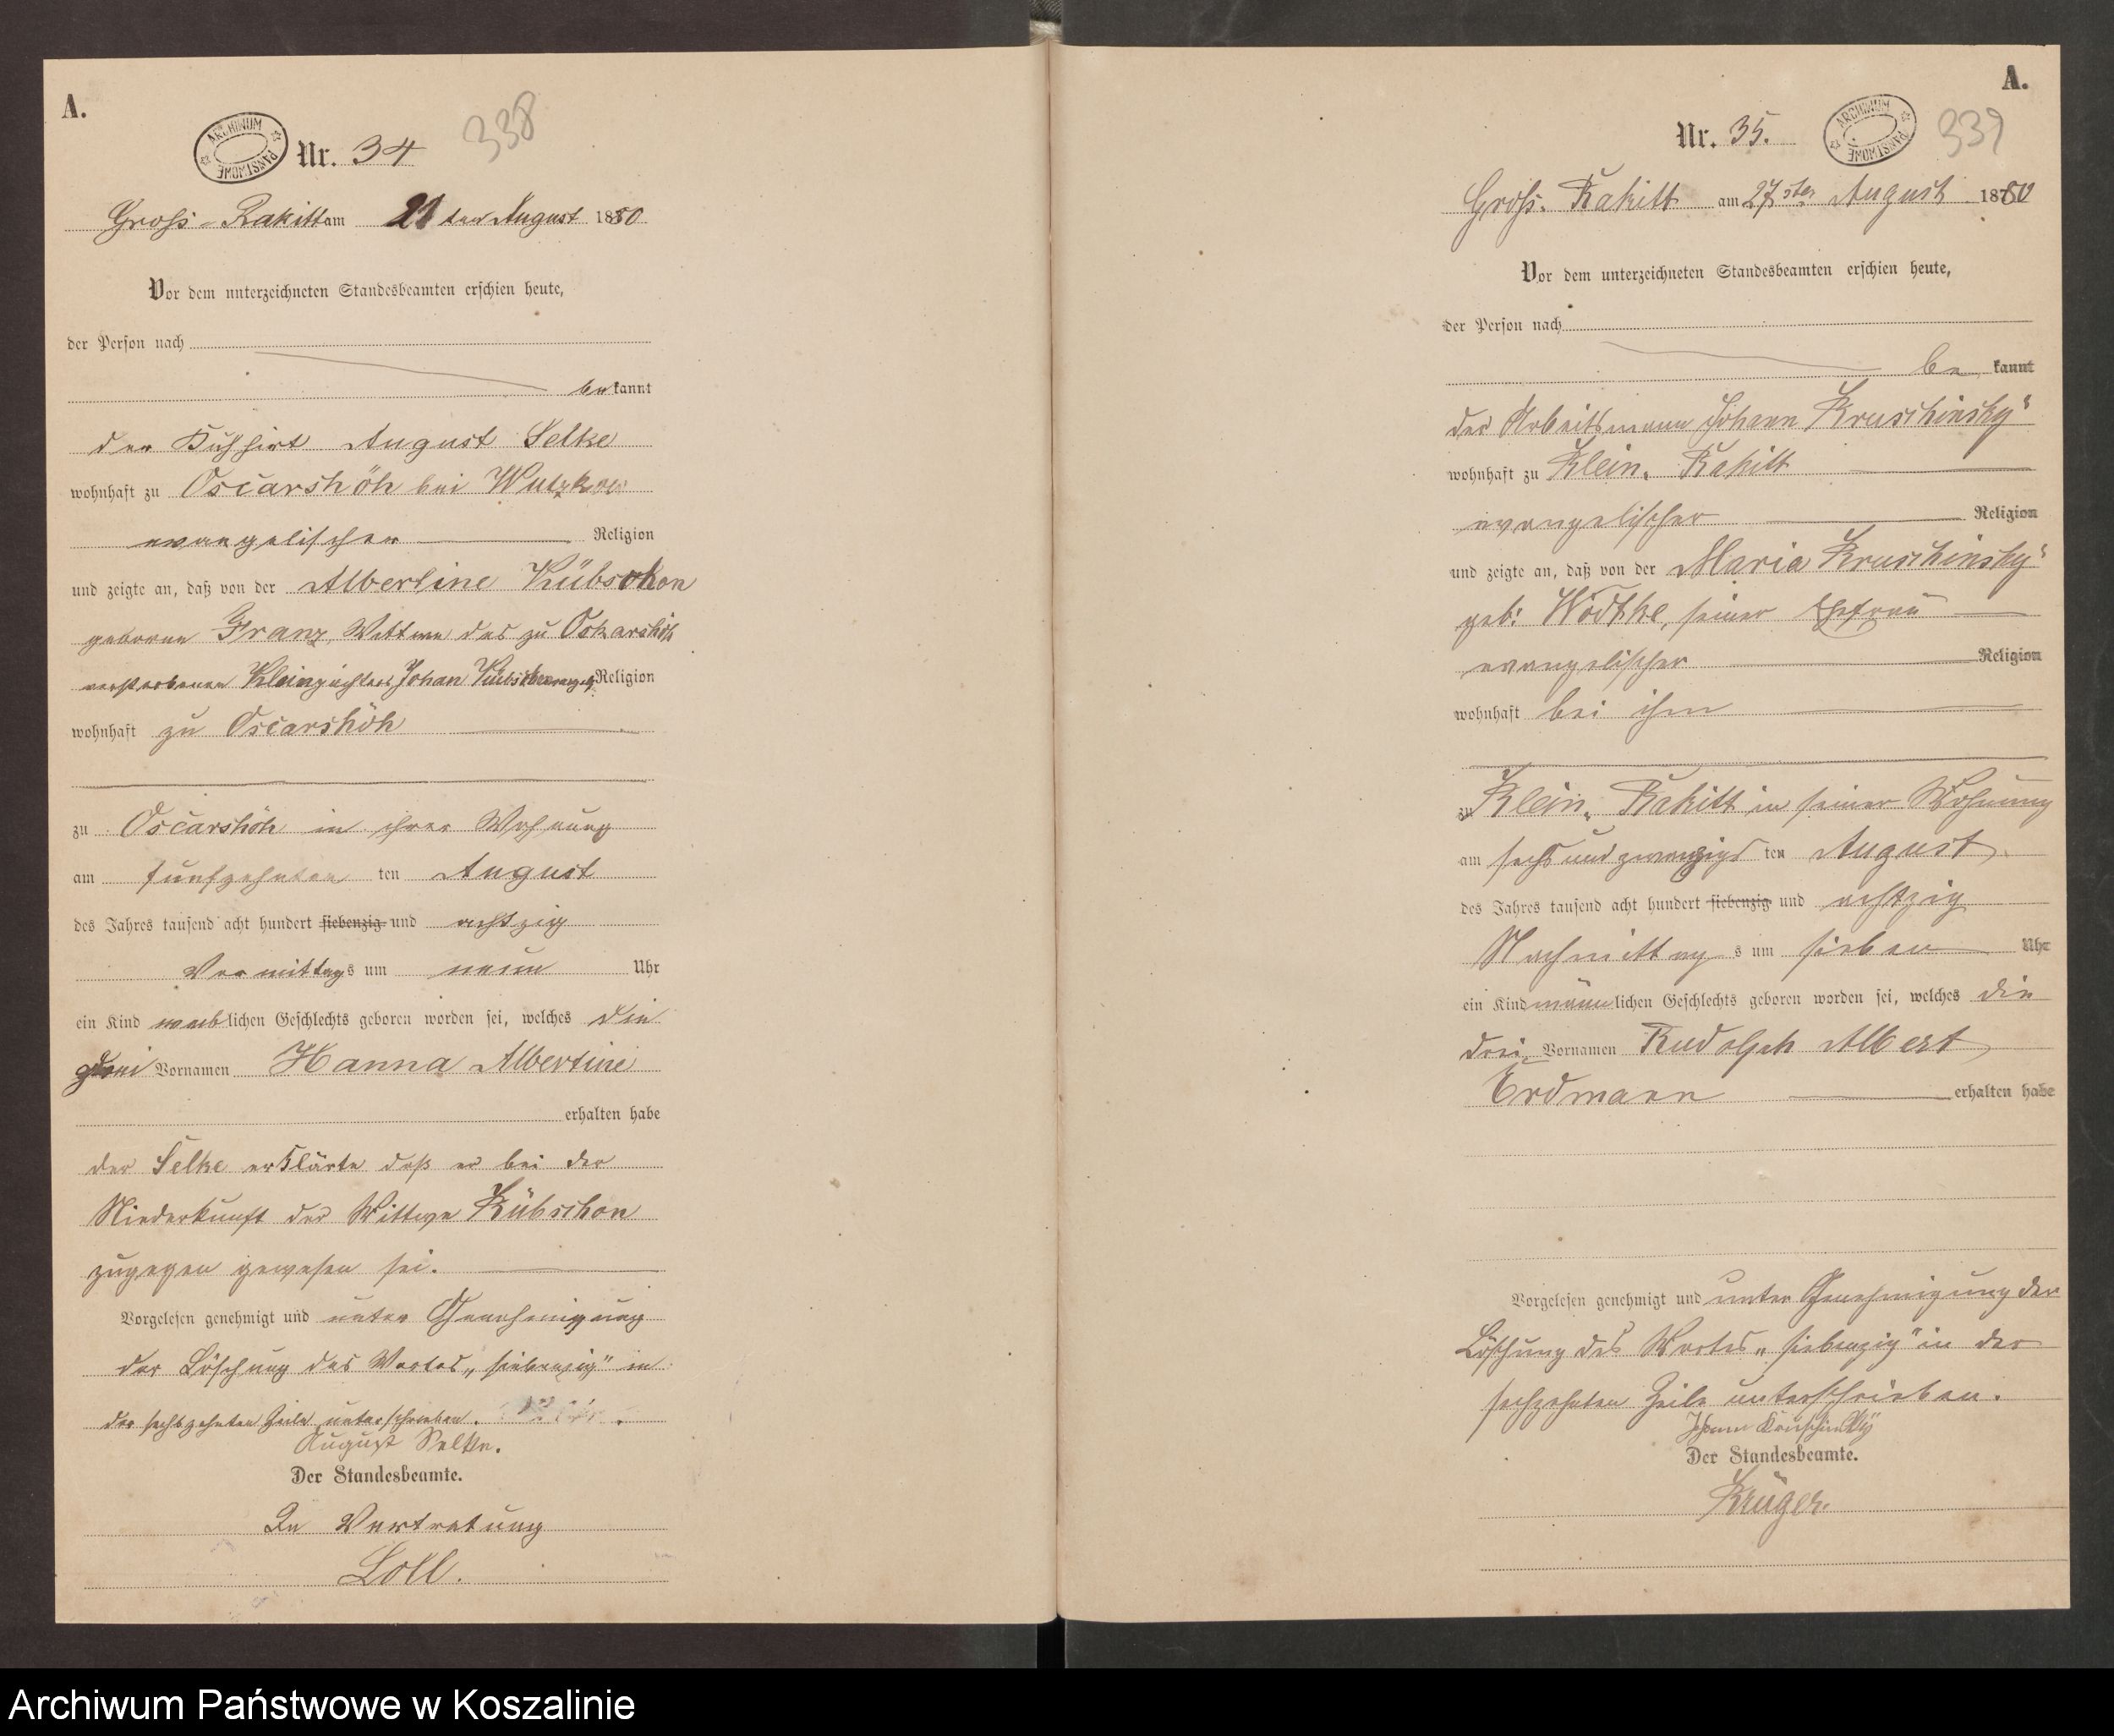 A.
ARCHIWUM PAŃSTWOWE
Nr. 34
338
Gross-Rakitt am 21ten August 1880
Vor dem unterzeichneten Standesbeamten erschien heute,
der Person nach
bekannt
der Kuhhirt August Selke
wohnhaft zu Oscarshöh bei Wutzkow
evangelischer Religion
und zeigte an, daß von der Albertine Kübschon
geborene Franz, Wittwe des zu Oskarshöh
verstorbenen Kleinpächters Johan Kübschon evangel. Religion
wohnhaft zu Oscarshöh
zu Oscarshöh in ihrer Wohnung
am fünfzehnten ten August
des Jahres tausend acht hundert siebenzig und achtzig
Vormittags um neun Uhr
ein Kind weiblichen Geschlechts geboren worden sei, welches die
Vornamen Hanna Albertine
erhalten habe
der Selke erklärte daß er bei der
Niederkunft der Wittwe Kübschon
zugegen gewesen sei.
Vorgelesen genehmigt und unter Genehmigung
der Löschung des Wortes „siebenzig" in
der sechszehnten Zeile unterschrieben.
August Selke.
Der Standesbeamte.
In Vertretung
Loll.
A.
Nr. 35.
ARCHIWUM PAŃSTWOWE
339
Gross-Rakitt am 27sten August 1880
Vor dem unterzeichneten Standesbeamten erschien heute,
der Person nach
bekannt
der Arbeitsmann Johann Kruschinsky
wohnhaft zu Klein-Rakitt
evangelischer Religion
und zeigte an, daß von der Maria Kruschinsky
geb: Wodtke, seiner Ehefrau
evangelischer Religion
wohnhaft bei ihm
zu Klein-Rakitt in seiner Wohnung
am sechsundzwanzigsten August
des Jahres tausend acht hundert siebenzig und achtzig
Nachmittags um sieben Uhr
ein Kind männlichen Geschlechts geboren worden sei, welches die
drei Vornamen Rudolph Albert
Erdmann erhalten habe
Vorgelesen genehmigt und unter Genehmigung der
Löschung des Wortes „siebenzig" in der
sechzehnten Zeile unterschrieben.
Johann Kruschinsky
Der Standesbeamte.
Krüger.
Archiwum Państwowe w Koszalinie